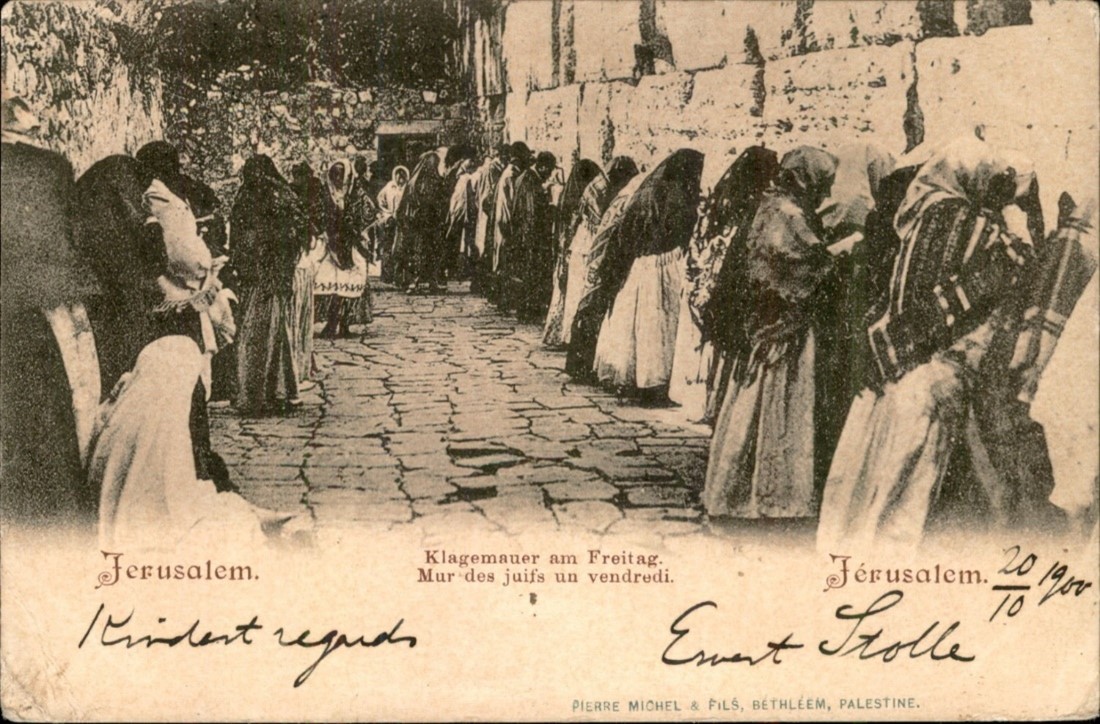 Jerusalem.
Klagemauer am Freitag.
Mur des juifs un vendredi.
Jérusalem.
20/10 1900
Kindest regards
Ernest Stolle
PIERRE MICHEL & FILS, BÉTHLÉEM, PALESTINE.